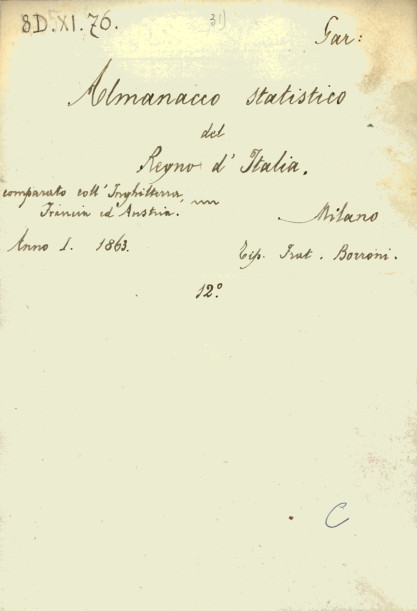 8D.XI.76.
31)
Gar:
Almanacco statistico
del
Regno d' Italia.
comparato coll' Inghilterra,
Francia ed Austria.
Milano
Anno I. 1863.
Tip. Frat. Borroni.
12.°
C